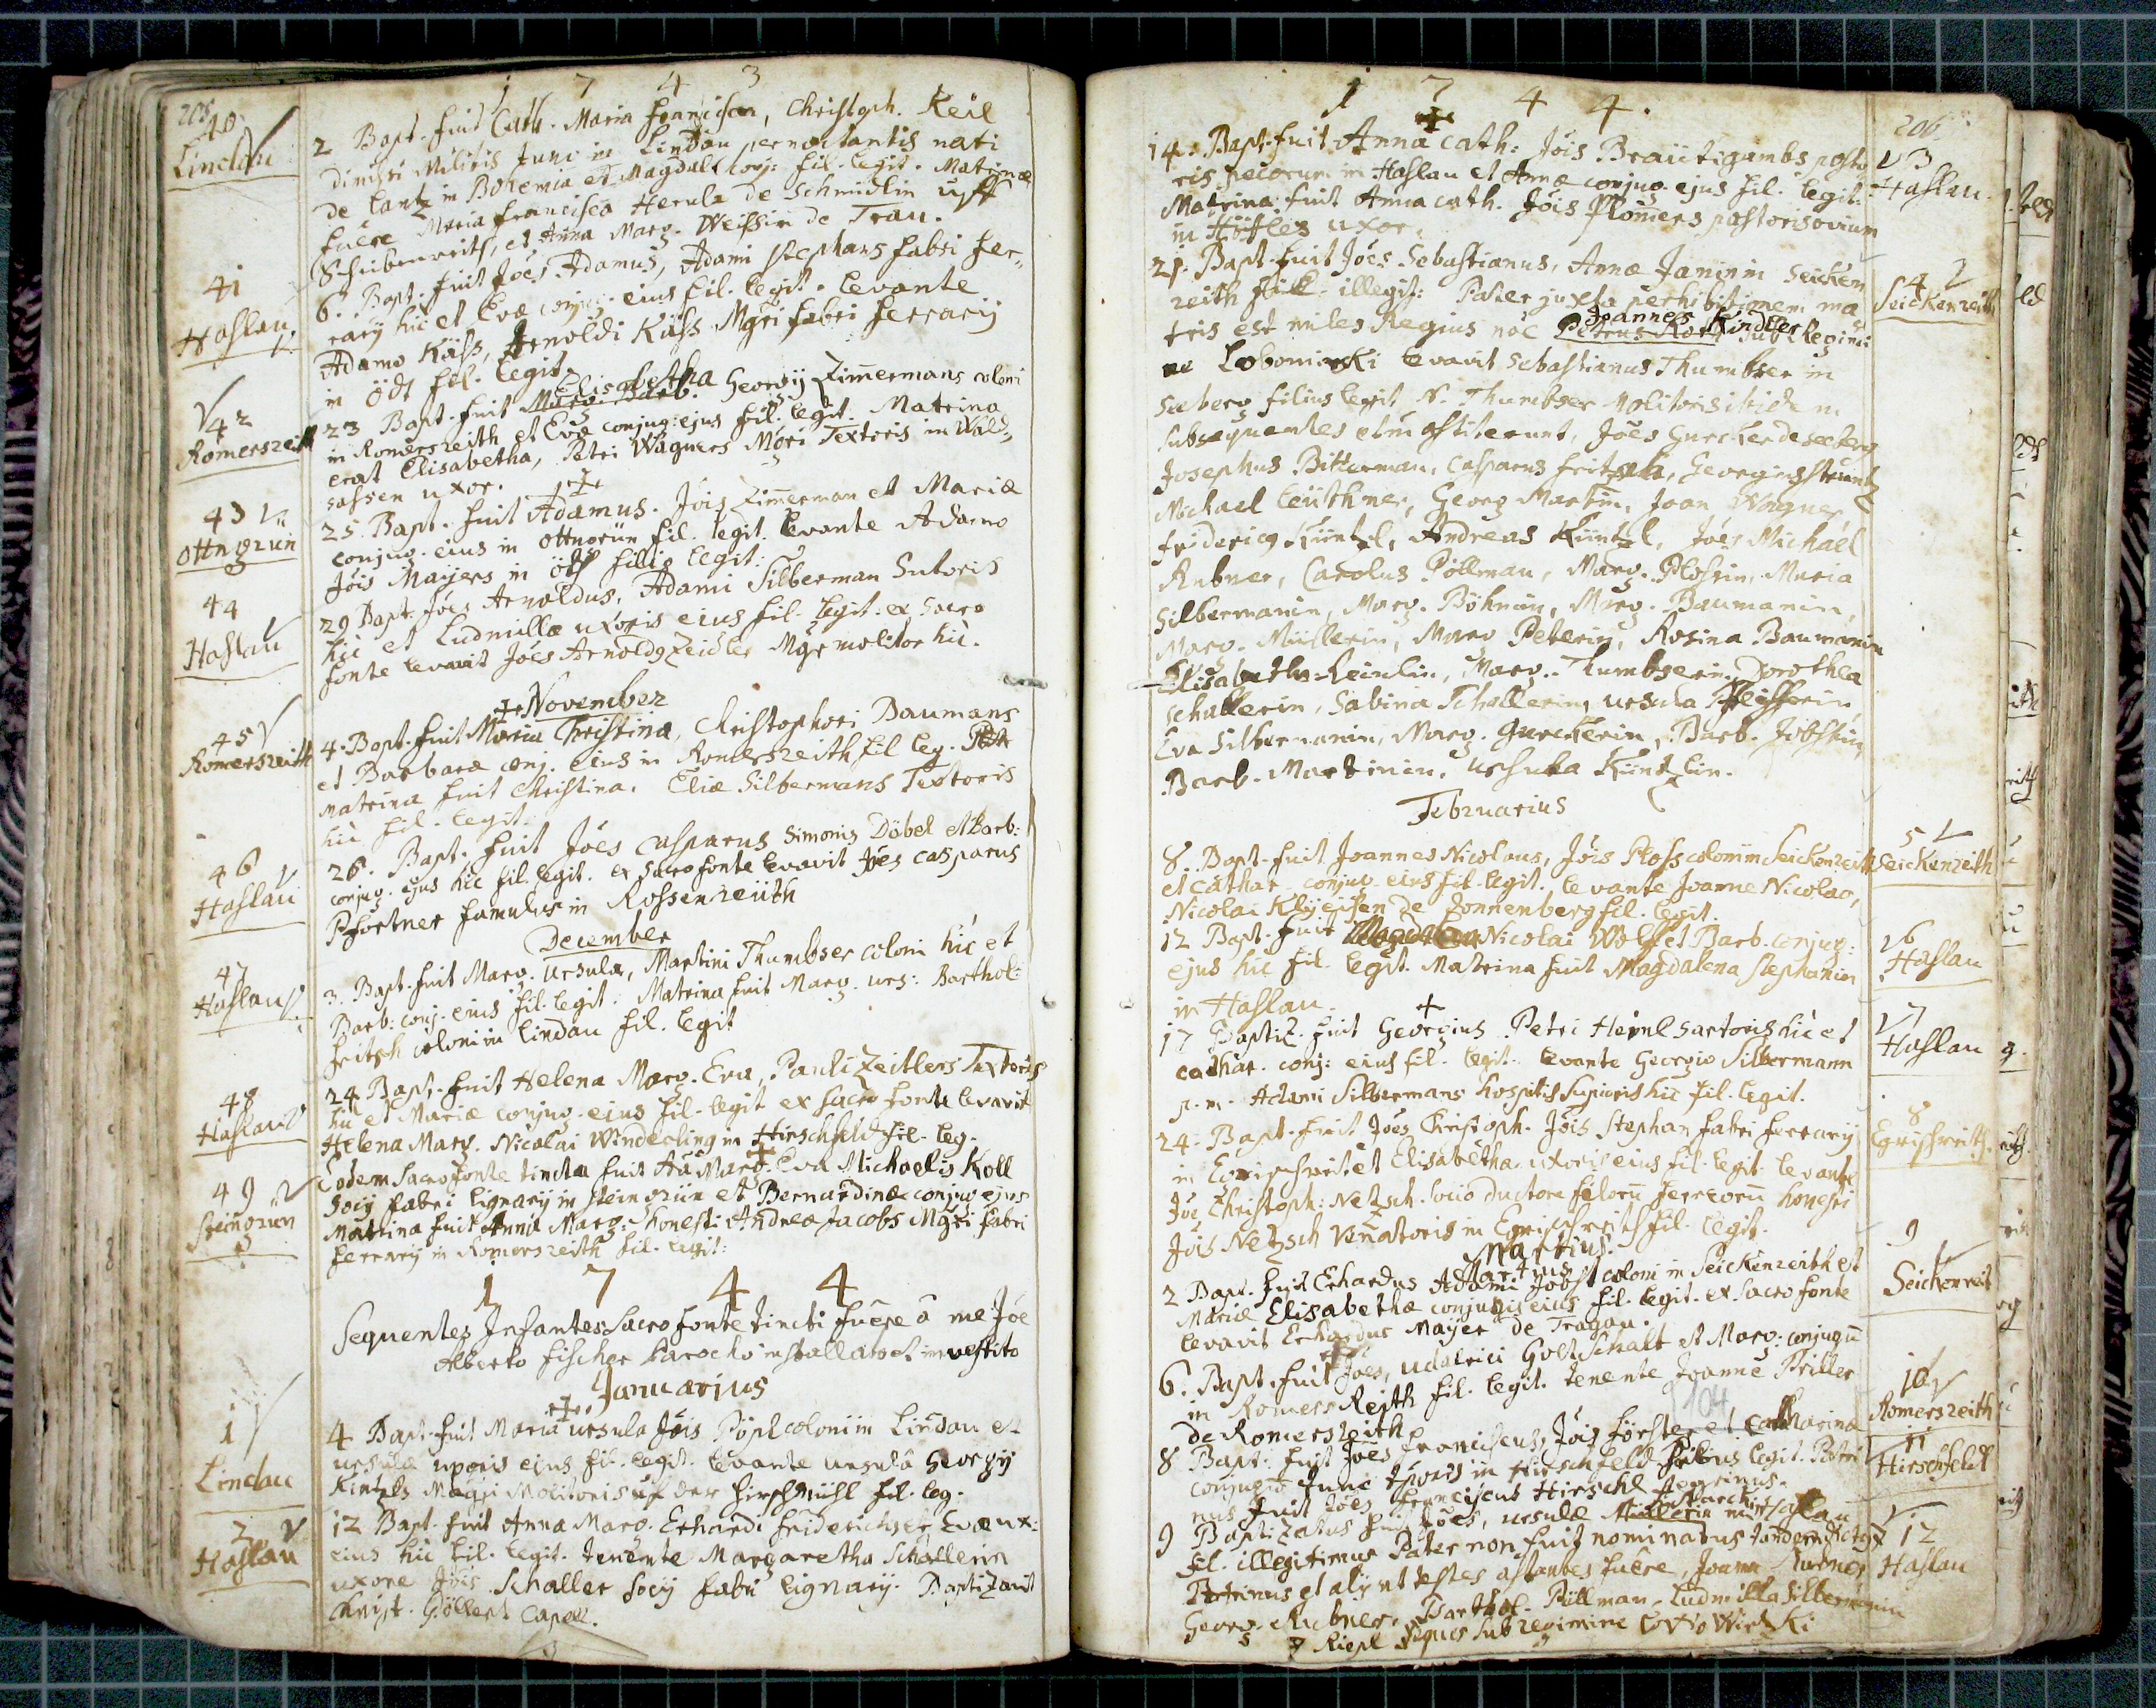 205
1 7 4 3
40
Lindau
2 Bapt. fuit Cath. Maria Francisca, Christoph. Keil
dimissi Militis Tunc in Lindau pernoctantis nati
de Lantz in Bohemia et Magdal. conj: fil. legit. Matrinæ
fuere Maria Francisca Herula de Schmidlin uff
Scheibenreith, et Anna Marg. Weissin de Trau.
41
Haslau
6. Bapt. fuit Joês Adamus, Adami Stephans fabri fer¬
rarij hic et Evæ conjug. eius fil. legit. levante
Adamo Käss, Arnoldi Käss Mgri fabri ferrarij
in Ödt fil. legit.
42
Romerszeith
Elisabetha
23 Bapt. fuit Marg. Barb. Georgij Zimmermans coloni
in Romerszeith et Eva conjug: ejus fil. legit. Matrina
erat Elisabetha, Petri Wagners Mgri Textoris in Wald¬
sassen uxor.
43
Ottngrün
25 Bapt. fuit Adamus. Jôis Zimmerman et Mariæ
conjug. eius in Ottngrün fil. legit. levante Adamo
Jôis Mayers in Öd filio legit:
44
Haslau
29 Bapt. Joês Arnoldus, Adami Silberman Sutoris
hic et Ludmillæ uxoris eius fil. legit: ex Sacro
fonte levavit Joês Arnoldg Zeidler Mgr molitor hic.
November
45
Romerszeith
4. Bapt. fuit Maria Christina, Christophori Baumans
et Barbaræ conj. eius in Romerszeith fil leg.
matrina fuit Christina, Eliæ Silbermans Textoris
hic fil. legit.
46
Haslau
26. Bapt. fuit Joês Casparus Simonis Döbel et Barb:
conjug. ejus hic fil. legit. ex Sacro fonte levavit Joês Casparus
Pfortner famulus in Rossenreüth
December
47
Haslau
3. Bapt. fuit Marg. Ursula, Martini Thumbser coloni hic et
Barb: conj. eius fil. legit: Matrina fuit Marg. Urs: Barthol:
Fritsch coloni in Lindau fil. legit
48
Haslau
24 Bapt. fuit Helena Marg. Eva, Pauli Zeitlers Textoris
hic et Mariæ conjug. eius fil. legit ex Sacro fonte levavit
Helena Marg. Nicolai Winderling in Hirschfeld fil. leg.
49
Steingrün
Eodem Sacro fonte tincta fuit Aâ Marg. Eva Michaelis Koll
Socij fabri lignarij in Steingrün et Bernardinæ conjug ejus
Matrina fuit Anna Marg: honesti Andreæ Jacobs Mgri fabri
ferrarij in Romerszeith fil. legit:
1 7 4 4
Sequentes Infantes Sacro fonte tincti fuêre â me Joe
Alberto Fischer Parocho installato et investito
Januarius
1
Lindau
4 Bapt. fuit Maria Ursula Jôis Pöpl coloni in Lindau et
Ursulæ uxoris ejus fil. legit. levante Ursulâ Georgij
Kintzls Magri Molitoris uf der Hirschmühl fil. leg.
2
Haslau
12 Bapt. fuit Anna Marg. Erhardi Friderich et Evæ ux:
eius hic fil. legit. Tenente Margaretha Schallerin
uxore Jôis Schaller Socij fabri lignarij. Baptizavit
Christ. Göllert Capell.
206
1 7 4 4.
3
Haslau
14. Bapt. fuit Anna Cath: Jôis Braütigambs pasto
ris pecorum in Haslau et Annæ conjug. ejus fil. legit:
Matrina fuit Anna Cath. Jôis Plomers pastoris ovium
in Höfles uxor.
4
Seickenreith
21. Bapt. fuit Joês Sebastianus, Annæ Janinin Seicken
reith fil. illegit: Pater juxta perhibitionem ma
Joannes Kindler
tris est miles Regius nôe Petrus Roth sub Regimi
ne Lobominski levavit Sebastianus Thumbser in
Seeberg filius legit N. Thumbser Molitoris ibidem
subsequentes etm astiterunt, Joês Gurcker de Seeberg
Josephus Bitterman, Casparus Fritsch, Georgius Steinitz
Michael Leüthner, Georg Martin, Joan Wagner
Fridericg Küntzl, Andreas Küntzl, Joês Michäel
Rubner, Carolus Pöllman, Marg. Plossin, Maria
Silbermanin, Marg. Böhmin, Marg. Baumanin,
Marg. Müllerin, Marg Peterin, Rosina Baumanin
Elisabetha Heinlin, Marg. Thumbserin, Dorothea
Schallerin, Sabina Schallerin, Ursula Pleisserin,
Eva Silbermanin, Marg. Gurckerin, Barb. Jobstin,
Barb. Martinin, Urshula Küntzlin.
Februarius
5
Seickenzeith
8. Bapt. fuit Joannes Nicolaus, Jôis Ploss coloni in Seickenzeith
et Cathar. conjug. eius fil. legit. levante Joanne Nicolao,
Nicolai Klyeisen de Sonnenberg fil. legit.
6
Haslau
12 Bapt. fuit Magdalena Nicolai Wolf et Barb. conjug:
ejus hic fil. legit. Matrina fuit Magdalena Stephanin
in Haslau.
7
Haslau
17 Baptiz. fuit Georgius Petri Heinl Sartoris hic et
Cathar. conj: eius fil. legit. levante Georgio Silbermann
p. m. Adami Silbermans hospitis Superioris hic fil. legit.
8
Egrischreith
24. Bapt. fuit Joês Christoph. Jôis Stephan fabri ferrarij
in Egrischreit et Elisabetha uxoris eius fil. legit. levante
Joe Christoph: Netzsch. Socio ductore filorû ferreorû honesti
Jôis Netzsch Venatoris in Egrischreith fil. legit.
Martius
9
Seickenreit
2 Bapt. fuit Erhardus Adami Jobst coloni in Seickenzeith et
Mariæ Elisabethæ conjugis eius fil. legit. ex Sacro fonte
levavit Erhardus Mayer de Tragau.
10
Romerszeith
6. Bapt. fuit Joês, Udalrici Gottschalt et Marg: conjugû
in RomersReith fil. legit. tenente Joanne Pritler
de Romerszeith
104
11
Hirschfeldt
8 Bapt: fuit Joês Franciscus, Jôis Förster et Catharina
conjugû Tunc Tporis in Hirschfeld filius legit. Patri
nus fuit Joês Franciscus Hirschl
12
Haslau
9 Baptizatus fuit Joês, Ursulæ Müllerin in Haslau
fil. illegitimus Pater non fuit nominatus tandem
Patrinus et alij ut testes astantes fuêre, Joann Rubner
Georg. Rubner, Barthol. Püllman, Ludmilla Silbermanin
Riepl Eques sub regimine